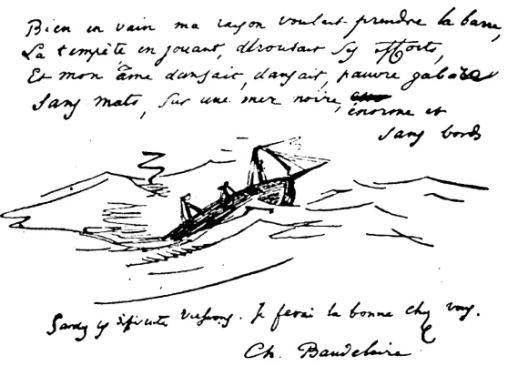 Bien en vain ma raison voulait prendre la barre,
La tempête en jouant, déroutait ses efforts,
Et mon âme dansait, dansait, pauvre gabare
Sans mats, sur une mer noire, énorme et
sans bords
Je ferai la bonne chez vous.
Ch. Baudelaire